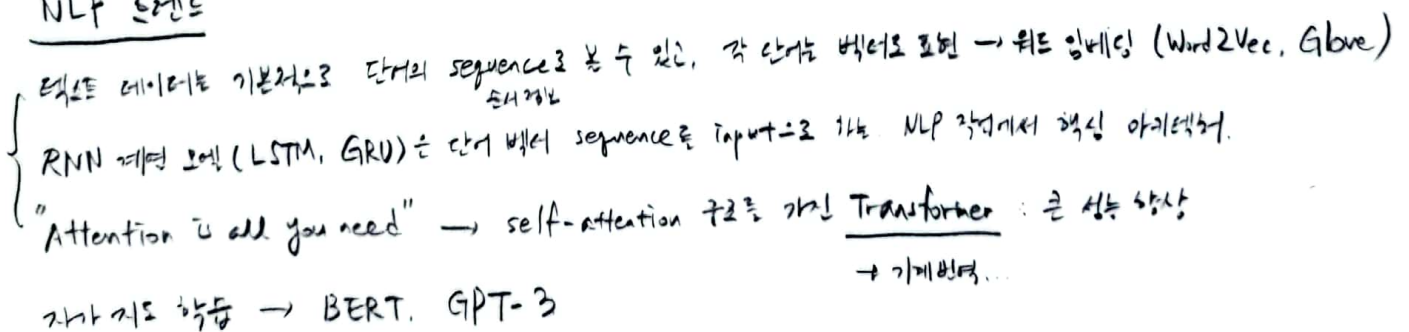 NLP 트렌드
텍스트 데이터는 기본적으로 단어의 sequence로 볼 수 있고, 각 단어는 벡터로 표현 → 워드 임베딩 (Word2Vec, Glove)
순서 정보
RNN 계열 모델(LSTM, GRU)은 단어 벡터 sequence를 input으로 하는 NLP 작업에서 핵심 아키텍처.
"Attention is all you need" → self-attention 구조를 가진 Transformer : 큰 성능 향상
→ 기계번역...
자가 지도 학습 → BERT. GPT-3